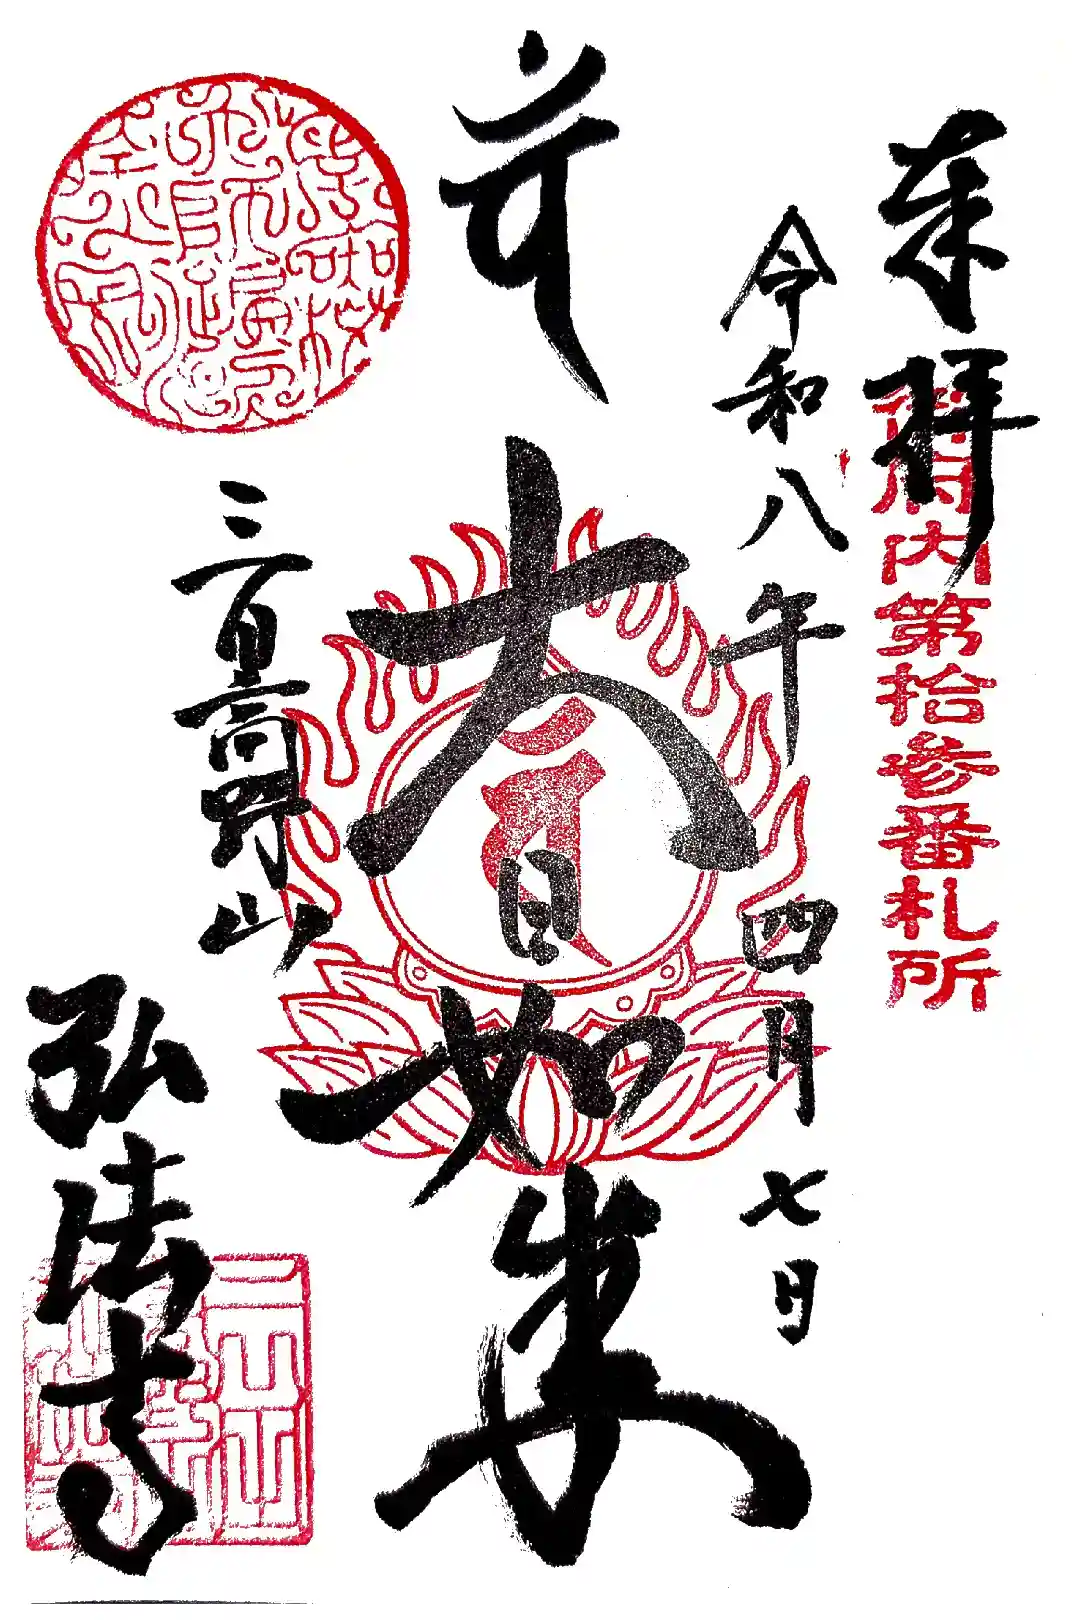 奉拝
御府内第拾参番札所
令和八年四月七日
大日如来
三田高野山
弘法寺